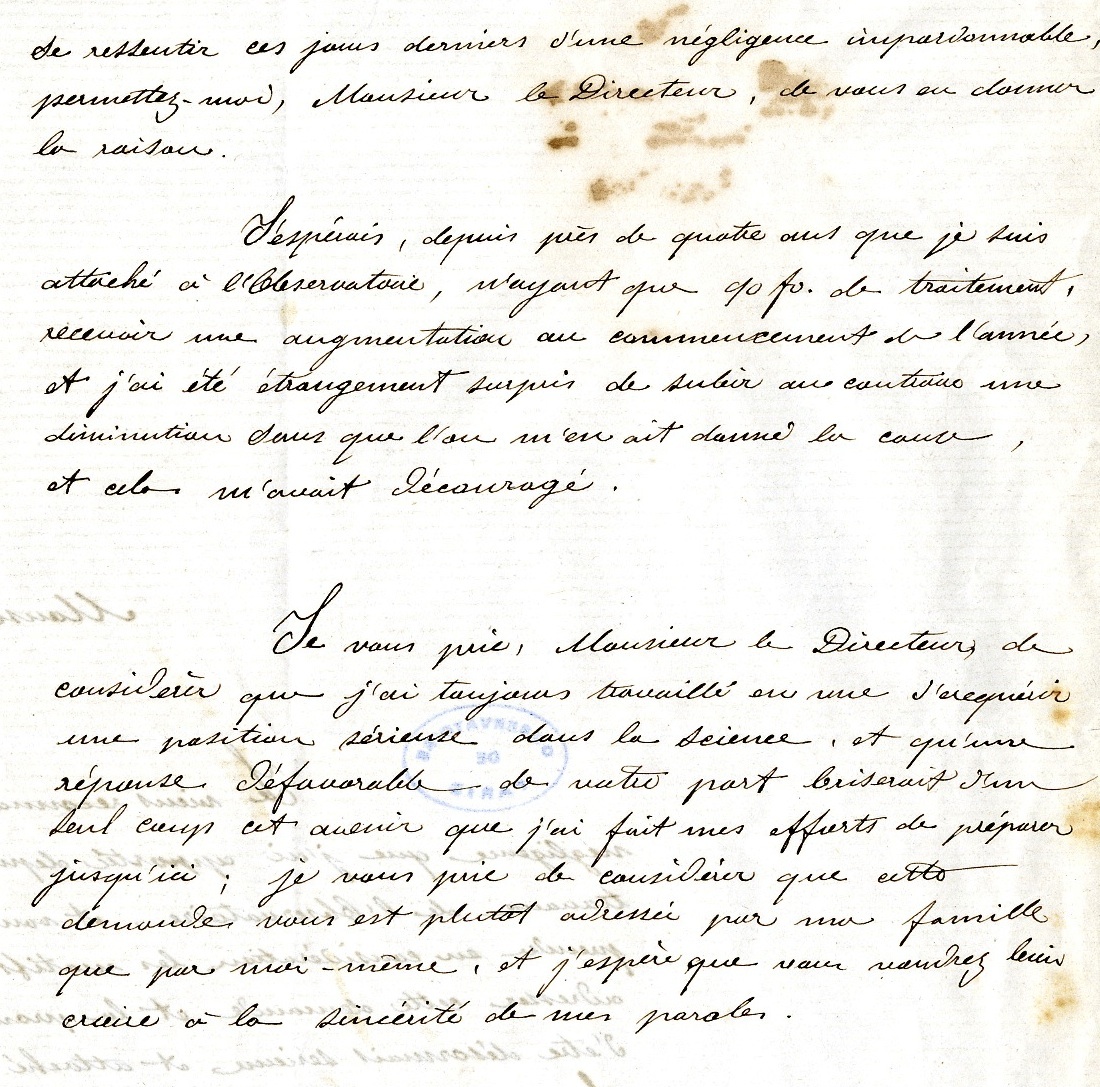 se ressentir ces jours derniers d'une négligence impardonnable,
permettez-moi, Monsieur le Directeur, de vous en donner
la raison.
J'espérais, depuis près de quatre ans que je suis
attaché à l'Observatoire, n'ayant que 90 fr. de traitement,
recevoir une augmentation au commencement de l'année,
et j'ai été étrangement surpris de subir au contraire une
diminution sans que l'on m'en ait donné la cause,
et cela m'avait découragé.
Je vous prie, Monsieur le Directeur, de
considérer que j'ai toujours travaillé en vue d'acquérir
une position sérieuse dans la science, et qu'une
réponse défavorable de votre part briserait d'un
seul coup cet avenir que j'ai fait mes efforts de préparer
jusqu'ici ; je vous prie de considérer que cette
demande vous est plutôt adressée par ma famille
que par moi-même, et j'espère que vous voudrez bien
croire à la sincérité de mes paroles.